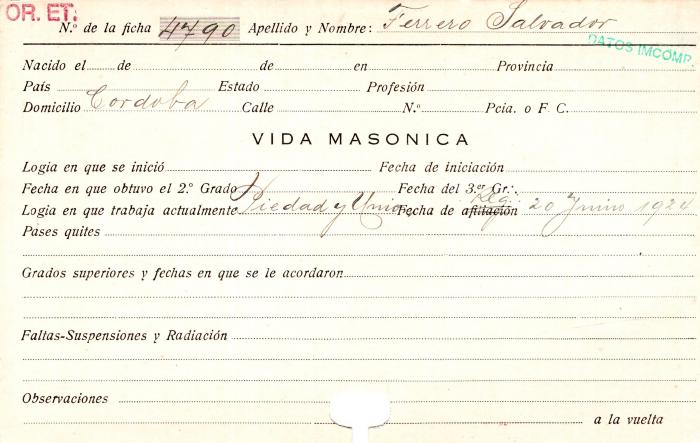 OR. ET.
N.º de la ficha 4790 Apellido y Nombre: Ferrero Salvador
DATOS IMCOMP.
Nacido el de de en Provincia
País Estado Profesión
Domicilio Cordoba Calle N.º Pcia. o F. C.
VIDA MASONICA
Logia en que se inició Fecha de iniciación
Fecha en que obtuvo el 2.º Grado Fecha del 3.er Gr.·.
Logia en que trabaja actualmente Piedad y Unión Fecha de afiliación Reg. 20 Junio 1924
Pases quites
Grados superiores y fechas en que se le acordaron
Faltas-Suspensiones y Radiación
Observaciones
a la vuelta